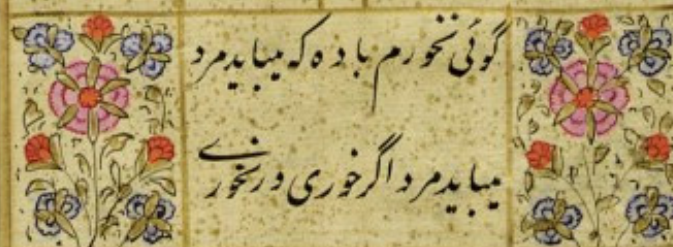 گوئی نخورم باده که میباید مرد
میباید مرد اگر خوری ور نخوری